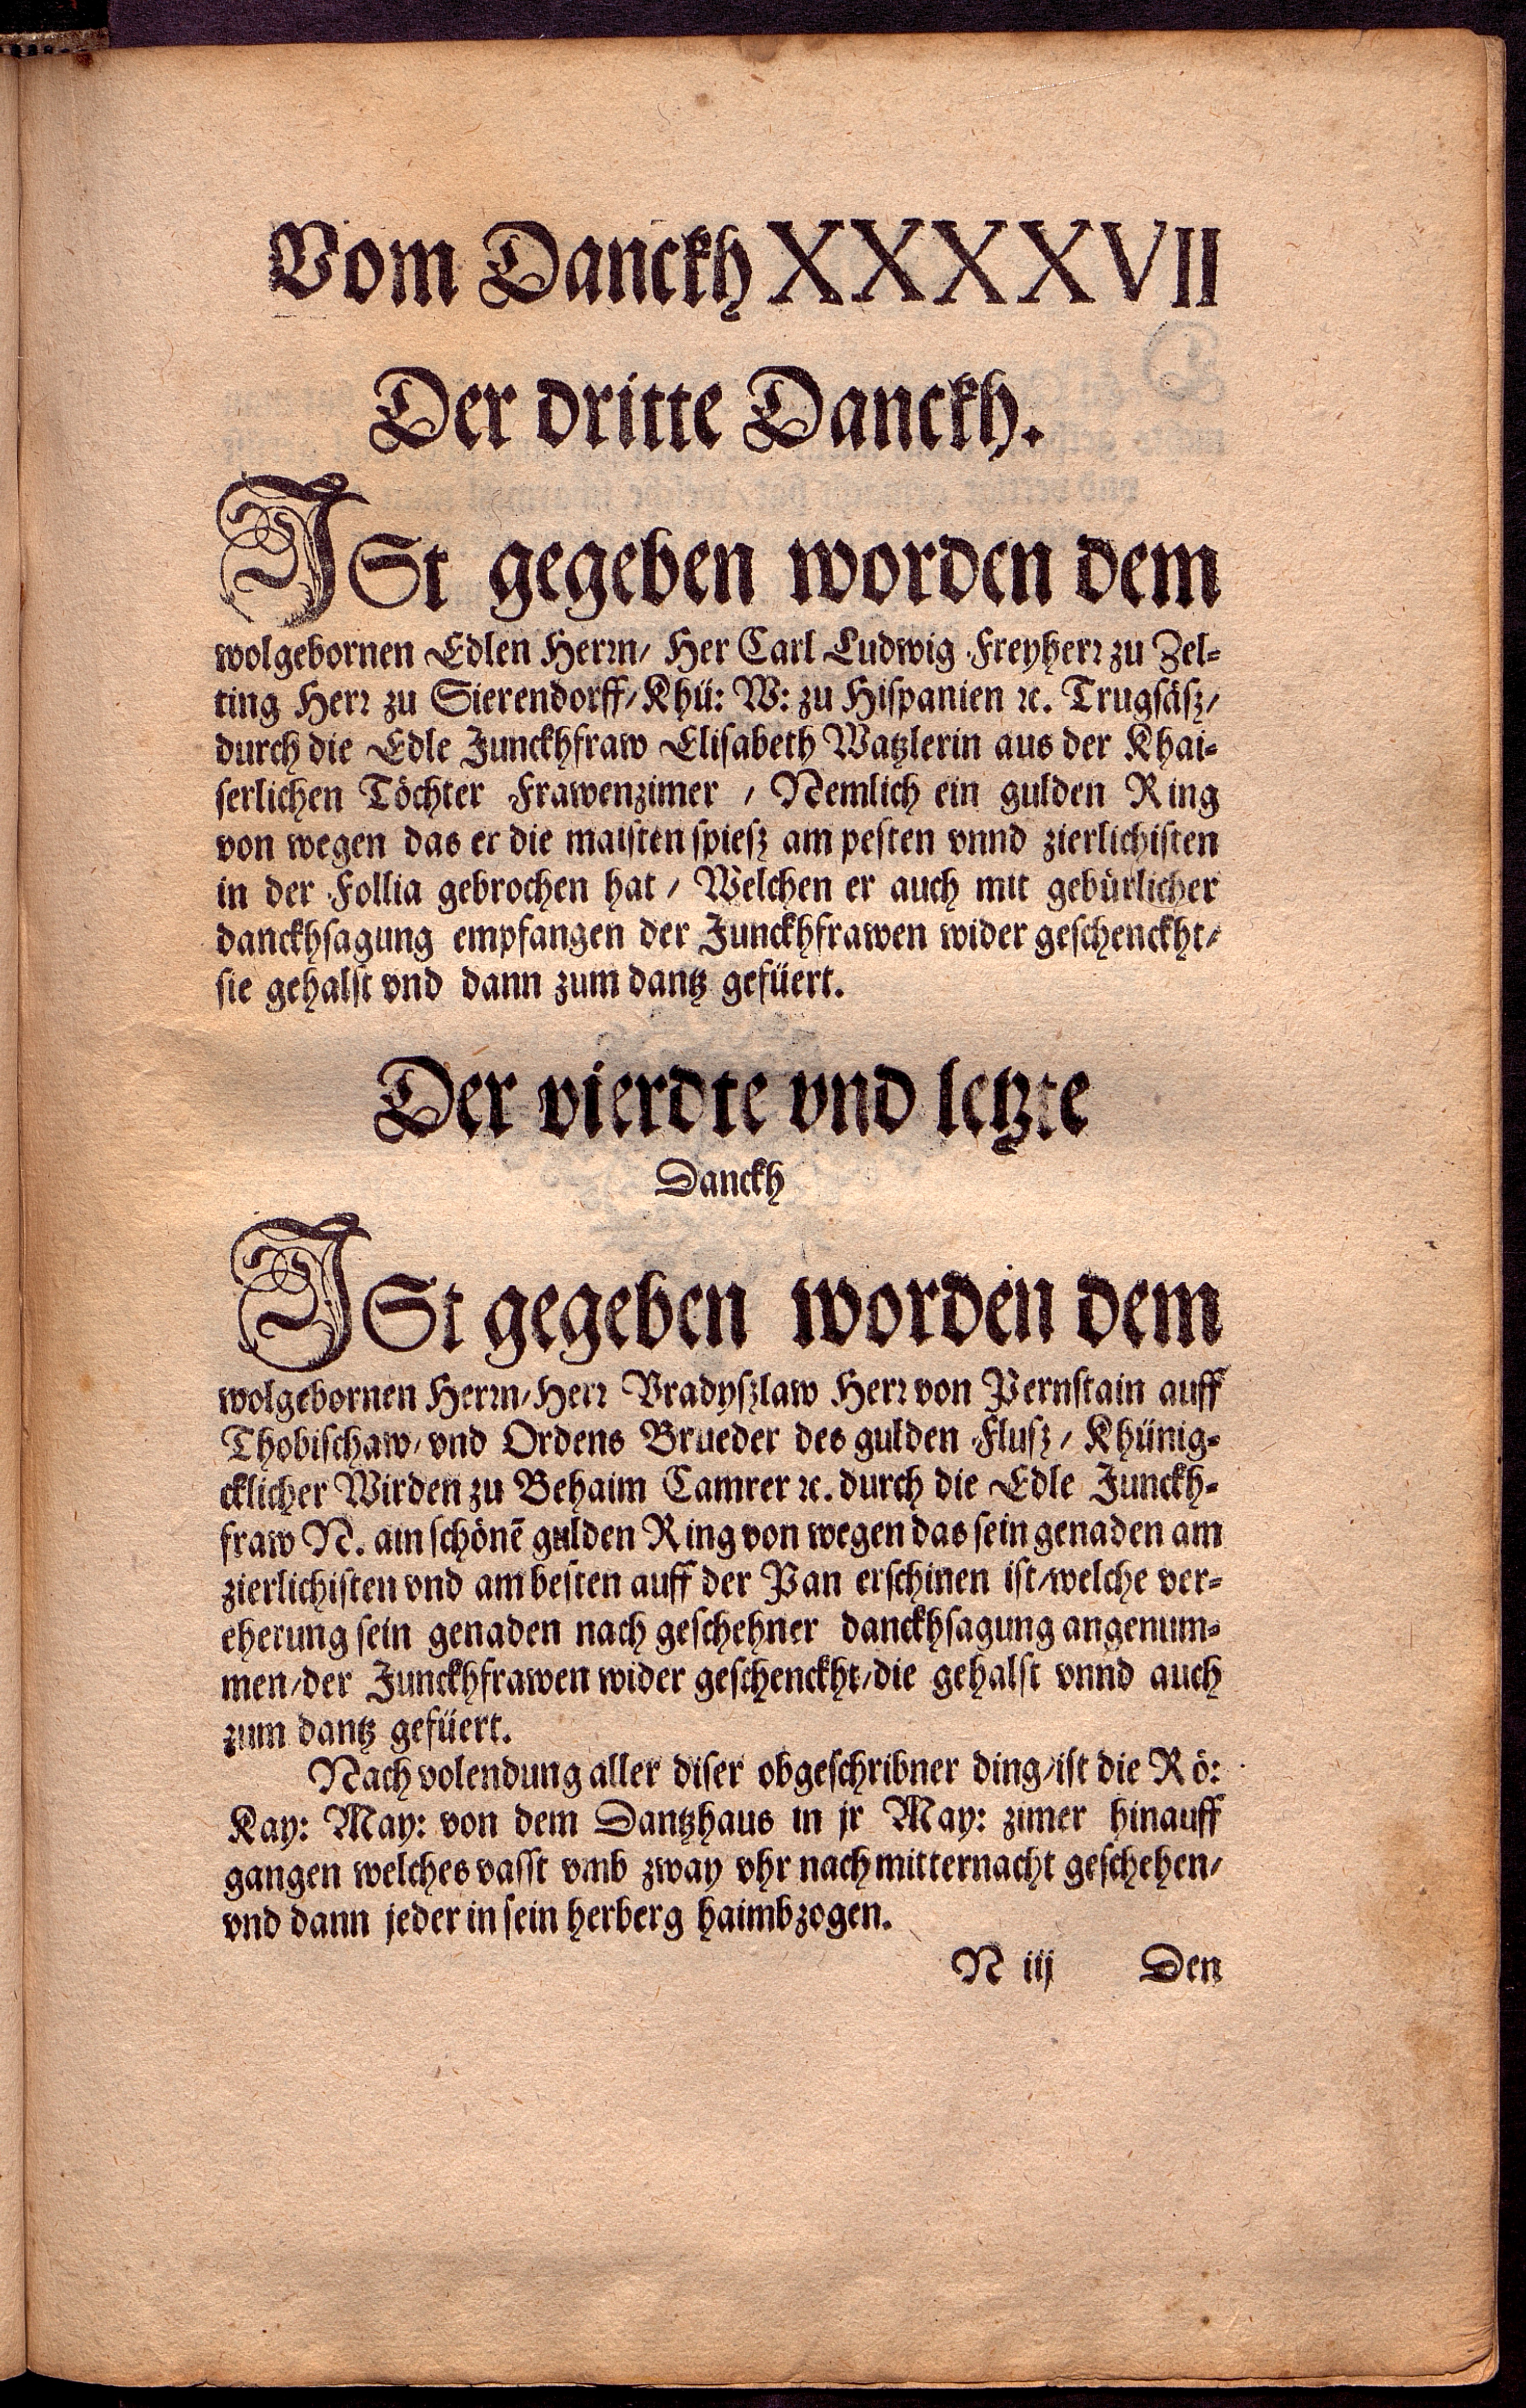 Vom Danckh XXXXVII
Der dritte Danckh.
JSt gegeben worden dem
wolgebornen Edlen Herrn/ Her Carl Ludwig Freyherr zu Zel-
ting Herr zu Sierendorff/ Khü: W: zu Hispanien ꝛc. Trugsäsz/
durch die Edle Junckhfraw Elisabeth Watzlerin aus der Khai-
serlichen Töchter Frawenzimer / Nemlich ein gulden Ring
von wegen das er die maisten spiesz am pesten vnnd zierlichisten
in der Follia gebrochen hat / Welchen er auch mit gebürlicher
danckhsagung empfangen der Junckhfrawen wider geschenckht/
sie gehalst vnd dann zum dantz gefüert.
Der vierdte vnd letzte
Danckh
JSt gegeben worden dem
wolgebornen Herrn/ Herr Vradyszlaw Herr von Pernstain auff
Thobischaw/ vnd Ordens Brueder des gulden Flusz / Khünig-
cklicher Wirden zu Behaim Camrer ꝛc. durch die Edle Junckh-
fraw N. ain schönē gulden Ring von wegen das sein genaden am
zierlichisten vnd am besten auff der Pan erschinen ist/ welche ver-
eherung sein genaden nach geschehner danckhsagung angenum-
men/ der Junckhfrawen wider geschenckht/ die gehalst vnnd auch
zum dantz gefüert.
Nach volendung aller diser obgeschribner ding/ ist die Rö:
Kay: May: von dem Dantzhaus in jr May: zimer hinauff
gangen welches vasst vmb zway vhr nach mitternacht geschehen/
vnd dann jeder in sein herberg haimbzogen.
N iij Den